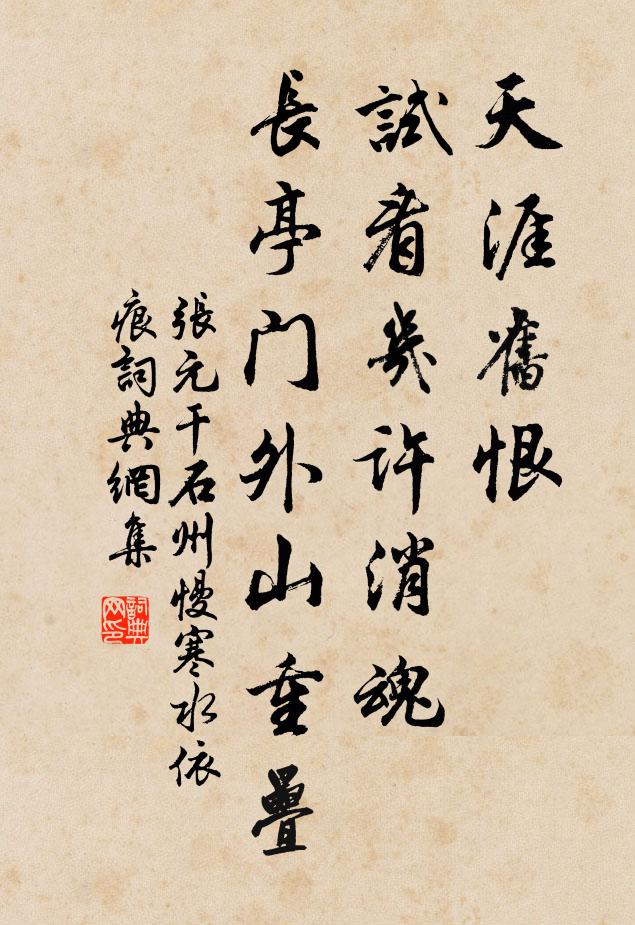 天涯舊恨
試看幾許消魂
長亭門外山重疊
張元干石州慢寒水依
痕詞典網集
詞典
网印